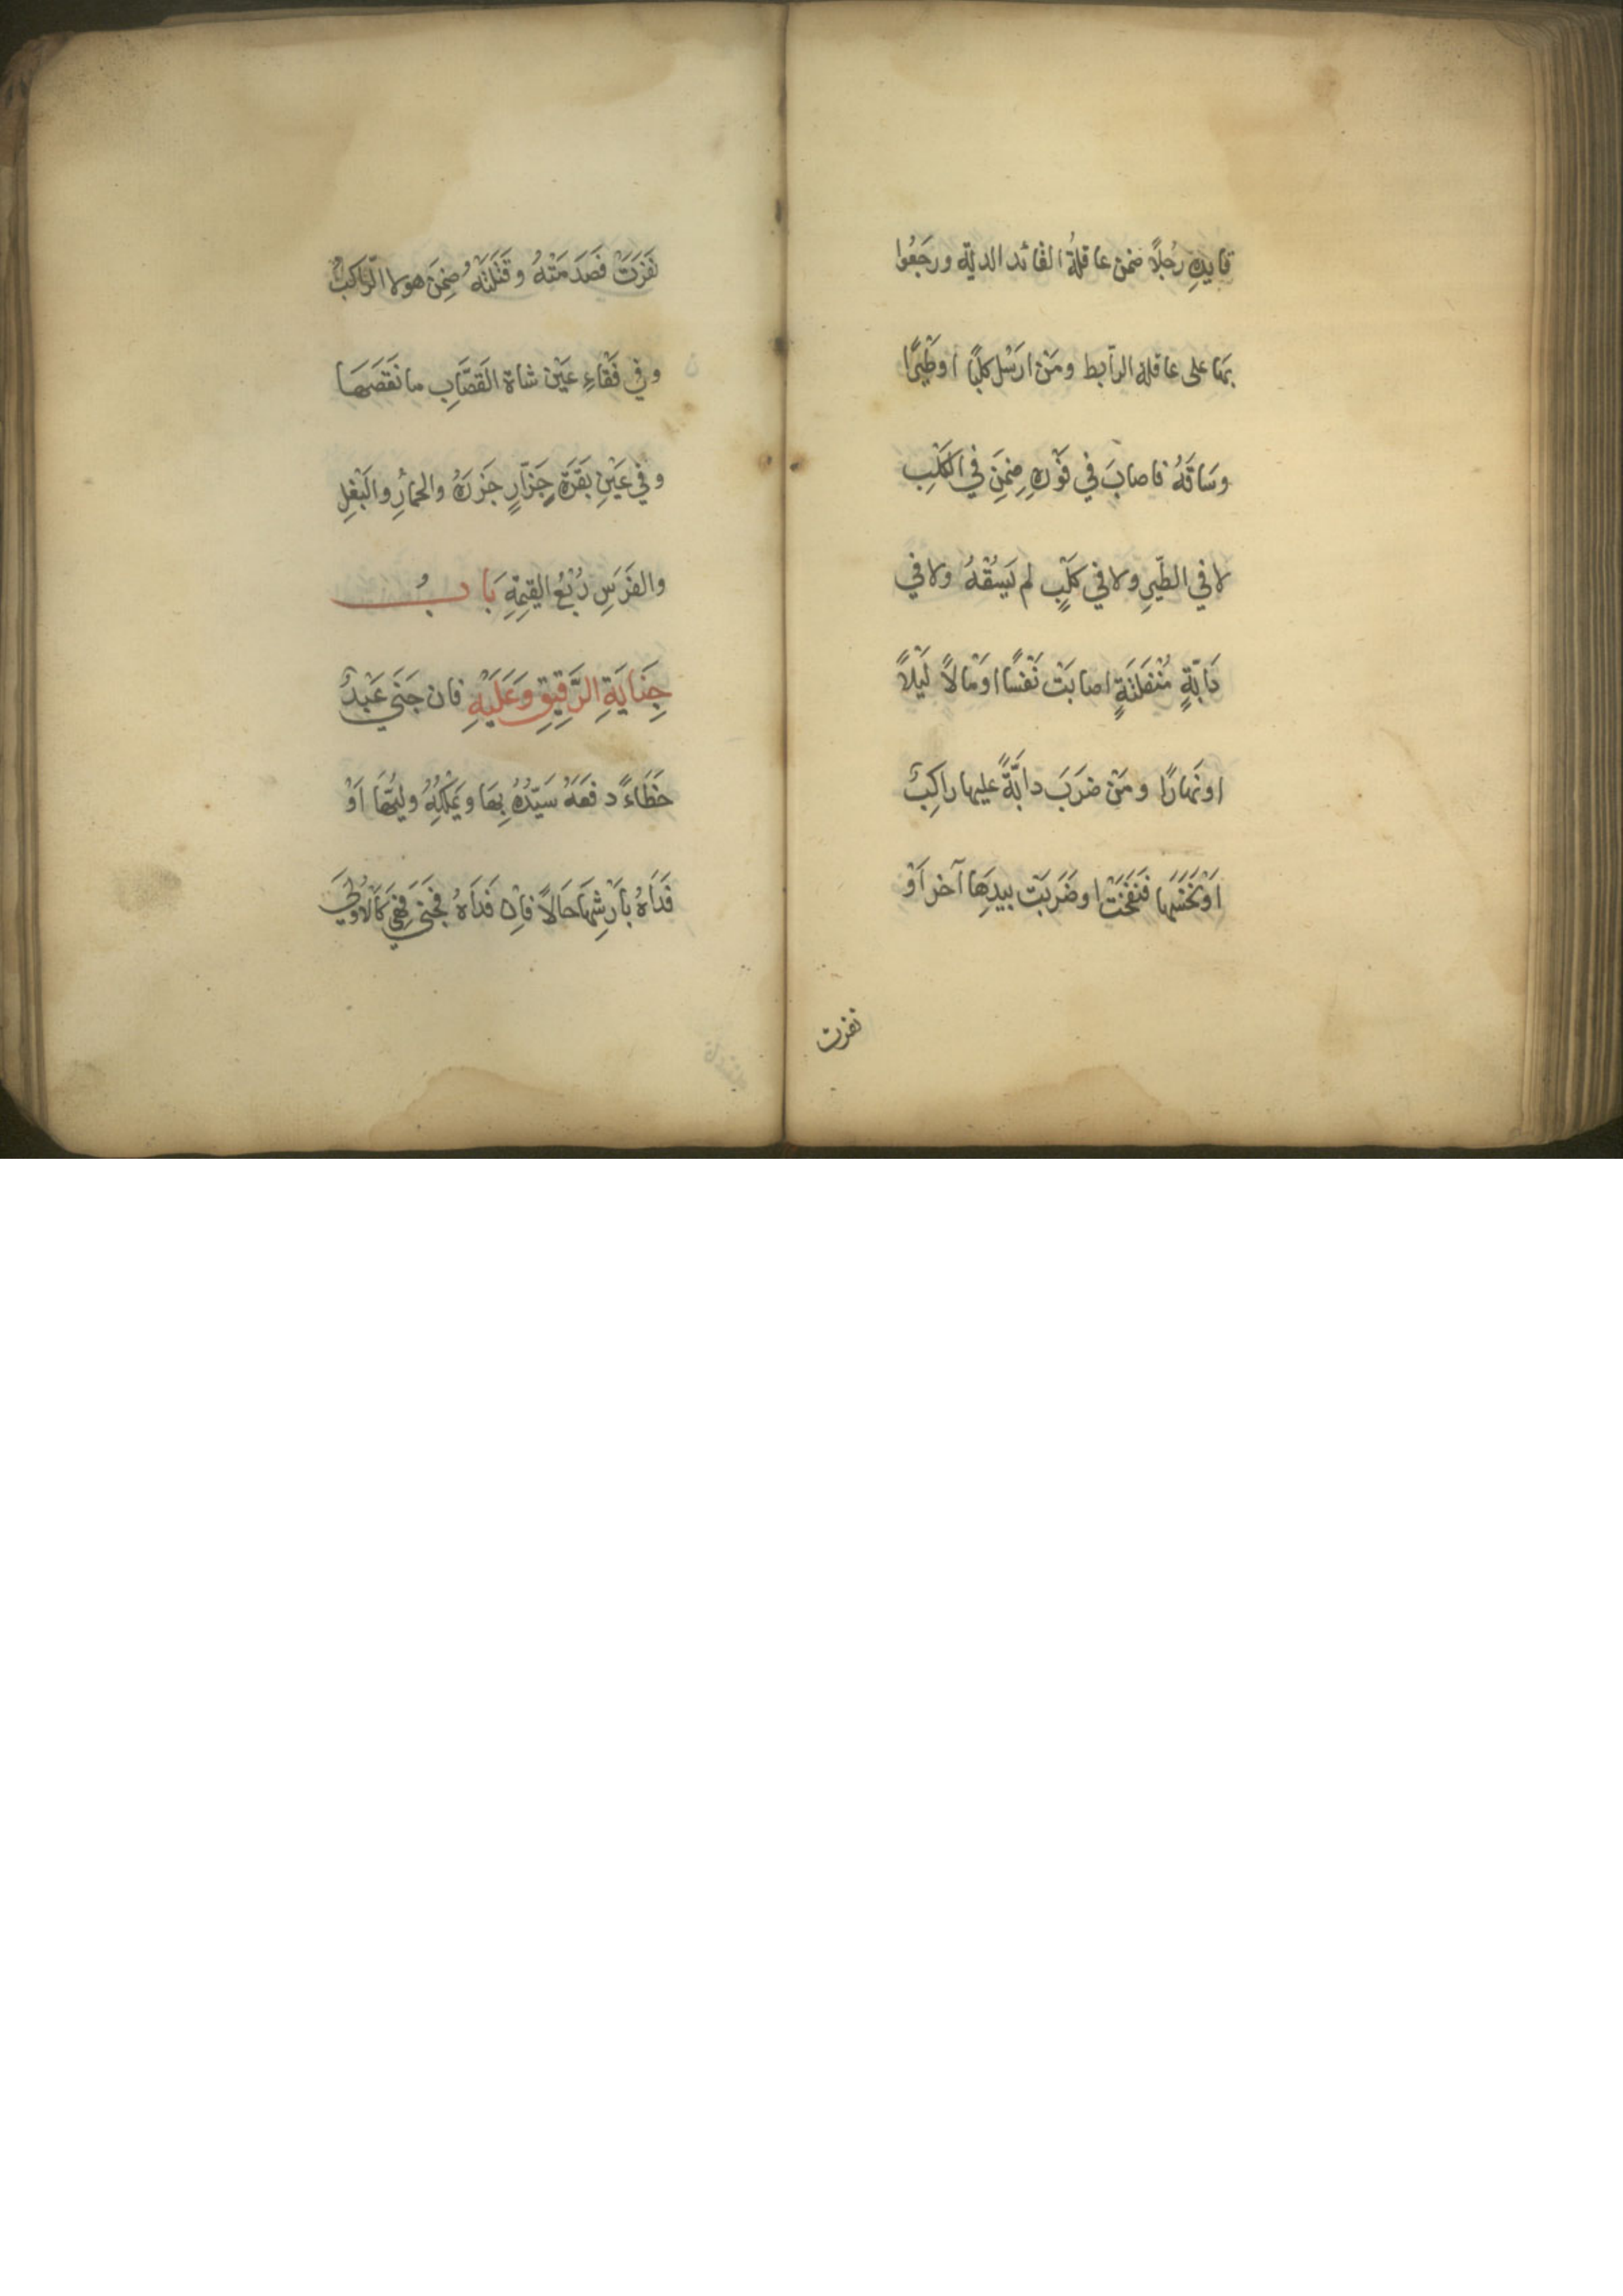 قايدِهِ رجُلاً ضمن عاقلةُ القائد الديّة ورجَعُوا
بهَا على عاقلة الرّابط ومَنْ ارسَل كلبًا اوطَيرًا
وسَاقَهُ فاصابَ في فَوْرِهِ ضِمَنَ في الكَلْبِ
لا في الطّيرِ ولا في كلْبٍ لم يَسُقْهُ ولا في
دَابّةٍ مُنْفَلتَةٍ اصابَتْ نَفْسًا اوْمالاً لَيْلاً
اونَهارًا ومَنْ ضرَبَ دابّةً عليها راكِبٌ
اوْنَخَسَها فنَفَحَتْ اوضَرَبَتْ بيدِهَا آخر اَوْ
نفرت
نَفَرَتْ فصَدَمَتْهُ وقَتَلَتْهُ ضِمَنَ هو لا الرّاكبُ
وفي فَقْاءِ عَيْن شاة القَصّابِ ما نَقَصَهَا
وفي عَيْنِ بَقَرَة جَزّارٍ جَزَرَهُ والحمارِ والبَغْلِ
والفَرَسِ رُبْعُ القِيمَةِ بَابُ
جِنايَةِ الرَّقِيقِ وَعَلَيْهِ فان جَنَى عَبْدٌ
خَطَاءً دفعَهُ سَيّدُهُ بِهَا ويَمْلِكُهُ وليّهَا اَوْ
فَدَاهُ بأَرْشِهَا حَالاً فاِن فَدَاهُ فجَنَى فهِيَ كَالاُولَى